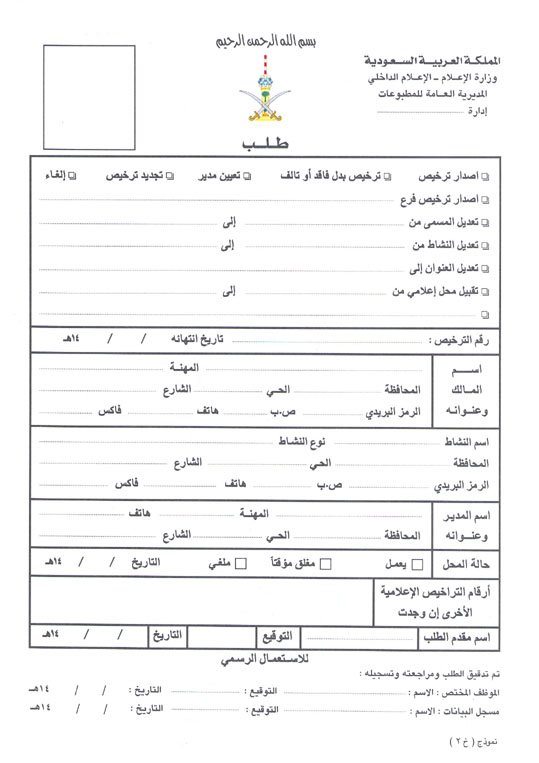 بسم الله الرحمن الرحيم
المملكة العربية السعودية
وزارة الإعلام - الإعلام الداخلي
المديرية العامة للمطبوعات
إدارة
طلب
اصدار ترخيص ترخيص بدل فاقد أو تالف تعيين مدير تجديد ترخيص إلغاء
اصدار ترخيص فرع
تعديل المسمى من إلى
تعديل النشاط من إلى
تعديل العنوان إلى
تقبيل محل إعلامي من إلى
رقم الترخيص : تاريخ انتهائه / / ١٤هـ
اسم المالك وعنوانه
المهنة
المحافظة الحي الشارع
الرمز البريدي ص.ب هاتف فاكس
اسم النشاط نوع النشاط
المحافظة الحي الشارع
الرمز البريدي ص.ب هاتف فاكس
اسم المدير وعنوانه
المهنة هاتف
المحافظة الحي الشارع
حالة المحل يعمل مغلق مؤقتاً ملغي التاريخ / / ١٤هـ
أرقام التراخيص الإعلامية
الأخرى إن وجدت
اسم مقدم الطلب التوقيع التاريخ / / ١٤هـ
للاستعمال الرسمي
تم تدقيق الطلب ومراجعته وتسجيله :
الموظف المختص : الاسم : التوقيع : التاريخ : / / ١٤هـ
مسجل البيانات : الاسم : التوقيع : التاريخ : / / ١٤هـ
نموذج ( خ ٢ )